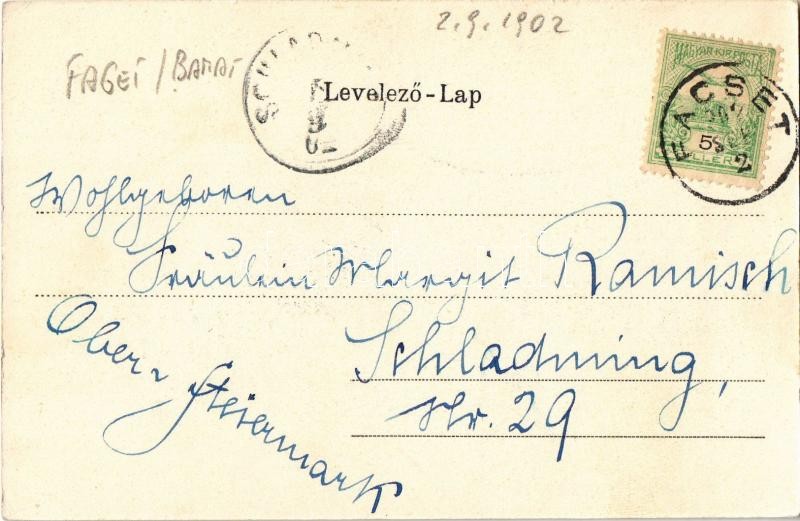 2.9.1902
FAGET / BANAT
SCHLADMING
Levelező-Lap
MAGYAR KIR. POSTA
FACSET
5
FILLÉR
Wohlgeboren
Fräulein Margit Ramisch
Schladming,
Nr. 29
Ober-Steiermark